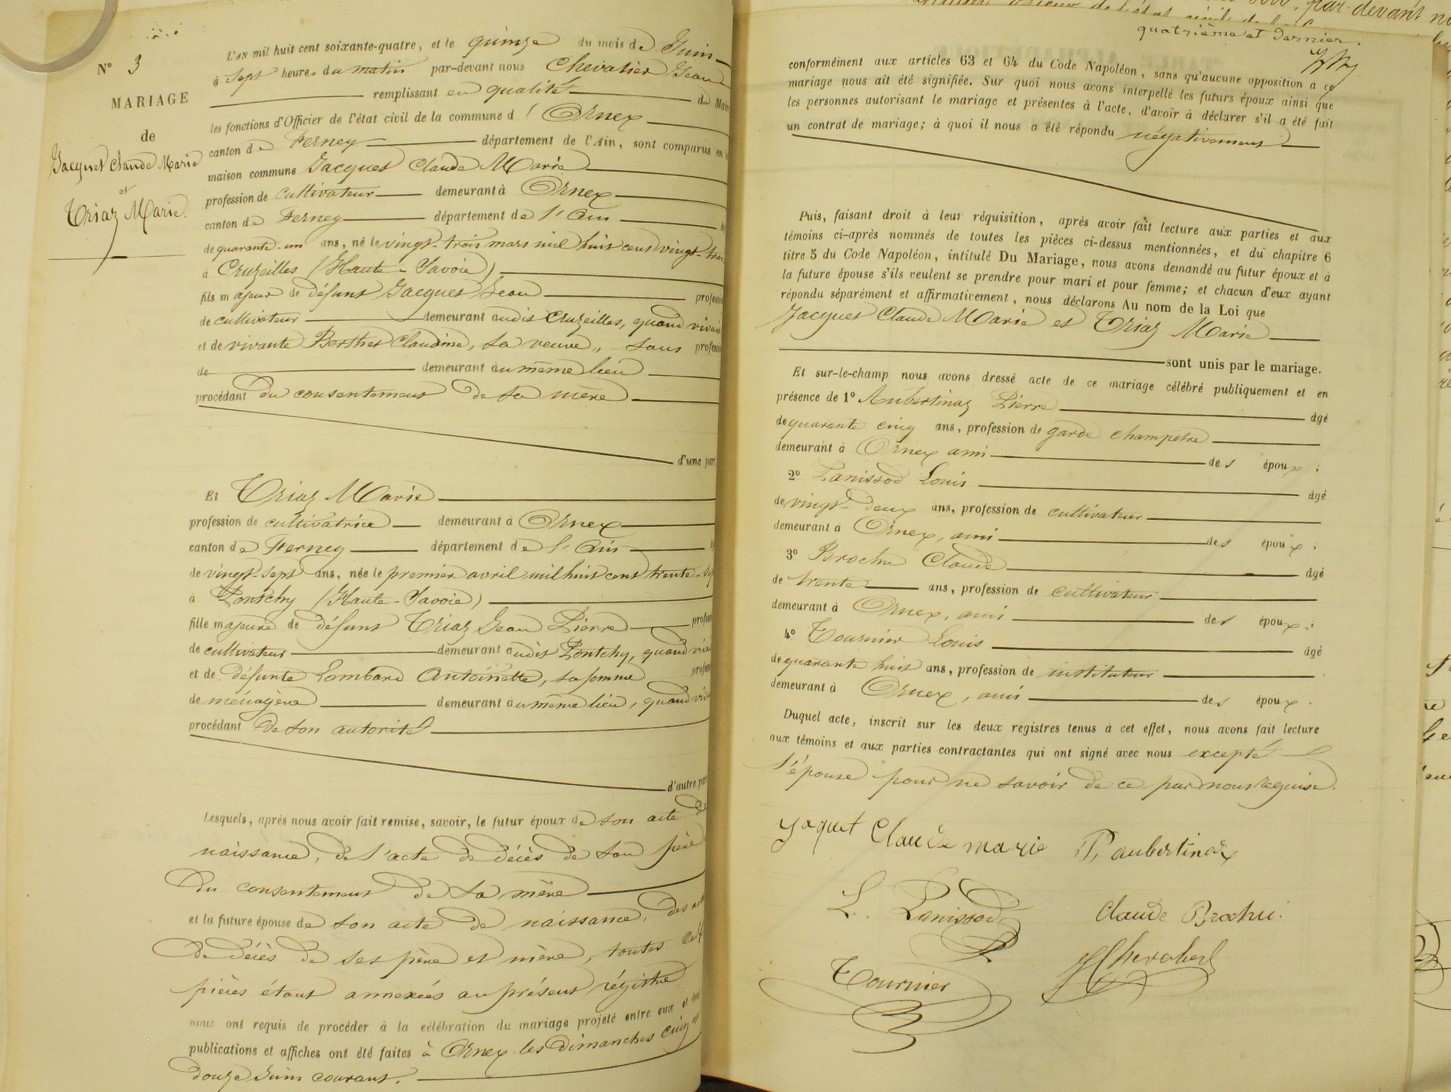 N° 3
MARIAGE
de
Jacquet Claude Marie
et
Triaz Marie
L'an mil huit cent soixante-quatre, et le quinze du mois de Juin
à sept heures du matin par-devant nous Chevalier Jean
remplissant en qualité de Mai
les fonctions d'Officier de l'état civil de la commune d'Ornex
canton de Ferney département de l'Ain, sont comparus en
maison commune Jacquet Claude Marie
profession de cultivateur demeurant à Ornex
canton de Ferney département de l'Ain
de quarante-un ans, né le vingt-trois mars mil huit cent vingt-trois
à Cruzeilles (Haute-Savoie)
fils majeur de défunt Jacquet Jean profess
de cultivateur demeurant audit Cruzeilles, quand vivait
et de vivante Berthet Claudine, sa veuve, sans profess
de demeurant au même lieu
procédant du consentement de sa mère
d'une part
Et Triaz Marie
profession de cultivatrice demeurant à Ornex
canton de Ferney département de l'Ain
de vingt-sept ans, née le premier avril mil huit cent trente-sept
à Pontchy (Haute-Savoie)
fille majeure de défunt Triaz Jean Pierre profess
de cultivateur demeurant audit Pontchy, quand viv
et de défunte Lombard Antoinette, sa femme profess
de ménagère demeurant au même lieu, quand viv
procédant de son autorité
d'autre part
Lesquels, après nous avoir fait remise, savoir, le futur époux de son acte de
naissance, de l'acte de décès de son père
du consentement de sa mère
et la future épouse de son acte de naissance, des act
de décès de ses père et mère, toutes
pièces étant annexées au présent régistre
nous ont requis de procéder à la célébration du mariage projeté entre eux et
publications et affiches ont été faites à Ornex les dimanches cinq et
douze Juin courant.
par-devant
quatrième et dernier.
conformément aux articles 63 et 64 du Code Napoléon, sans qu'aucune opposition à ce
mariage nous ait été signifiée. Sur quoi nous avons interpellé les futurs époux ainsi que
les personnes autorisant le mariage et présentes à l'acte, d'avoir à déclarer s'il a été fait
un contrat de mariage; à quoi il nous a été répondu négativement
Puis, faisant droit à leur réquisition, après avoir fait lecture aux parties et aux
témoins ci-après nommés de toutes les pièces ci-dessus mentionnées, et du chapitre 6
titre 5 du Code Napoléon, intitulé Du Mariage, nous avons demandé au futur époux et à
la future épouse s'ils veulent se prendre pour mari et pour femme; et chacun d'eux ayant
répondu séparément et affirmativement, nous déclarons Au nom de la Loi que
Jacquet Claude Marie et Triaz Marie
sont unis par le mariage.
Et sur-le-champ nous avons dressé acte de ce mariage célébré publiquement et en
présence de 1° Aubertinaz Pierre âgé
de quarante cinq ans, profession de garde champetre
demeurant à Ornex ami des époux;
2° Panissod Louis âgé
de vingt-deux ans, profession de cultivateur
demeurant à Ornex, ami des époux;
3° Brochu Claude âgé
de trente ans, profession de cultivateur
demeurant à Ornex, ami des époux;
4° Tournier Louis âgé
de quarante huit ans, profession de instituteur
demeurant à Ornex, ami des époux.
Duquel acte, inscrit sur les deux registres tenus à cet effet, nous avons fait lecture
aux témoins et aux parties contractantes qui ont signé avec nous excepté
l'épouse pour ne savoir de ce par nous requise.
Jaquet Claude marie P. aubertinaz
L. Panissod Claude Brochu.
Tournier